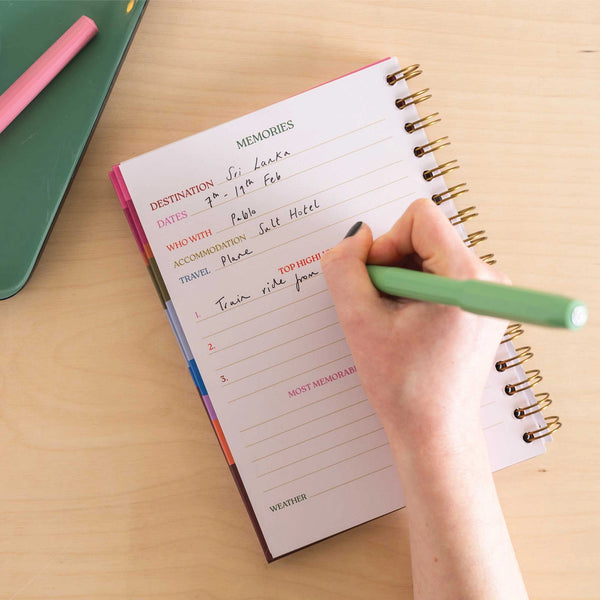 MEMORIES
DESTINATION Sri Lanka
DATES 7th - 19th Feb
WHO WITH Pablo
ACCOMMODATION Salt Hotel
TRAVEL Plane
TOP
1. Train ride from
2.
3.
MOST MEMORABL
WEATHER